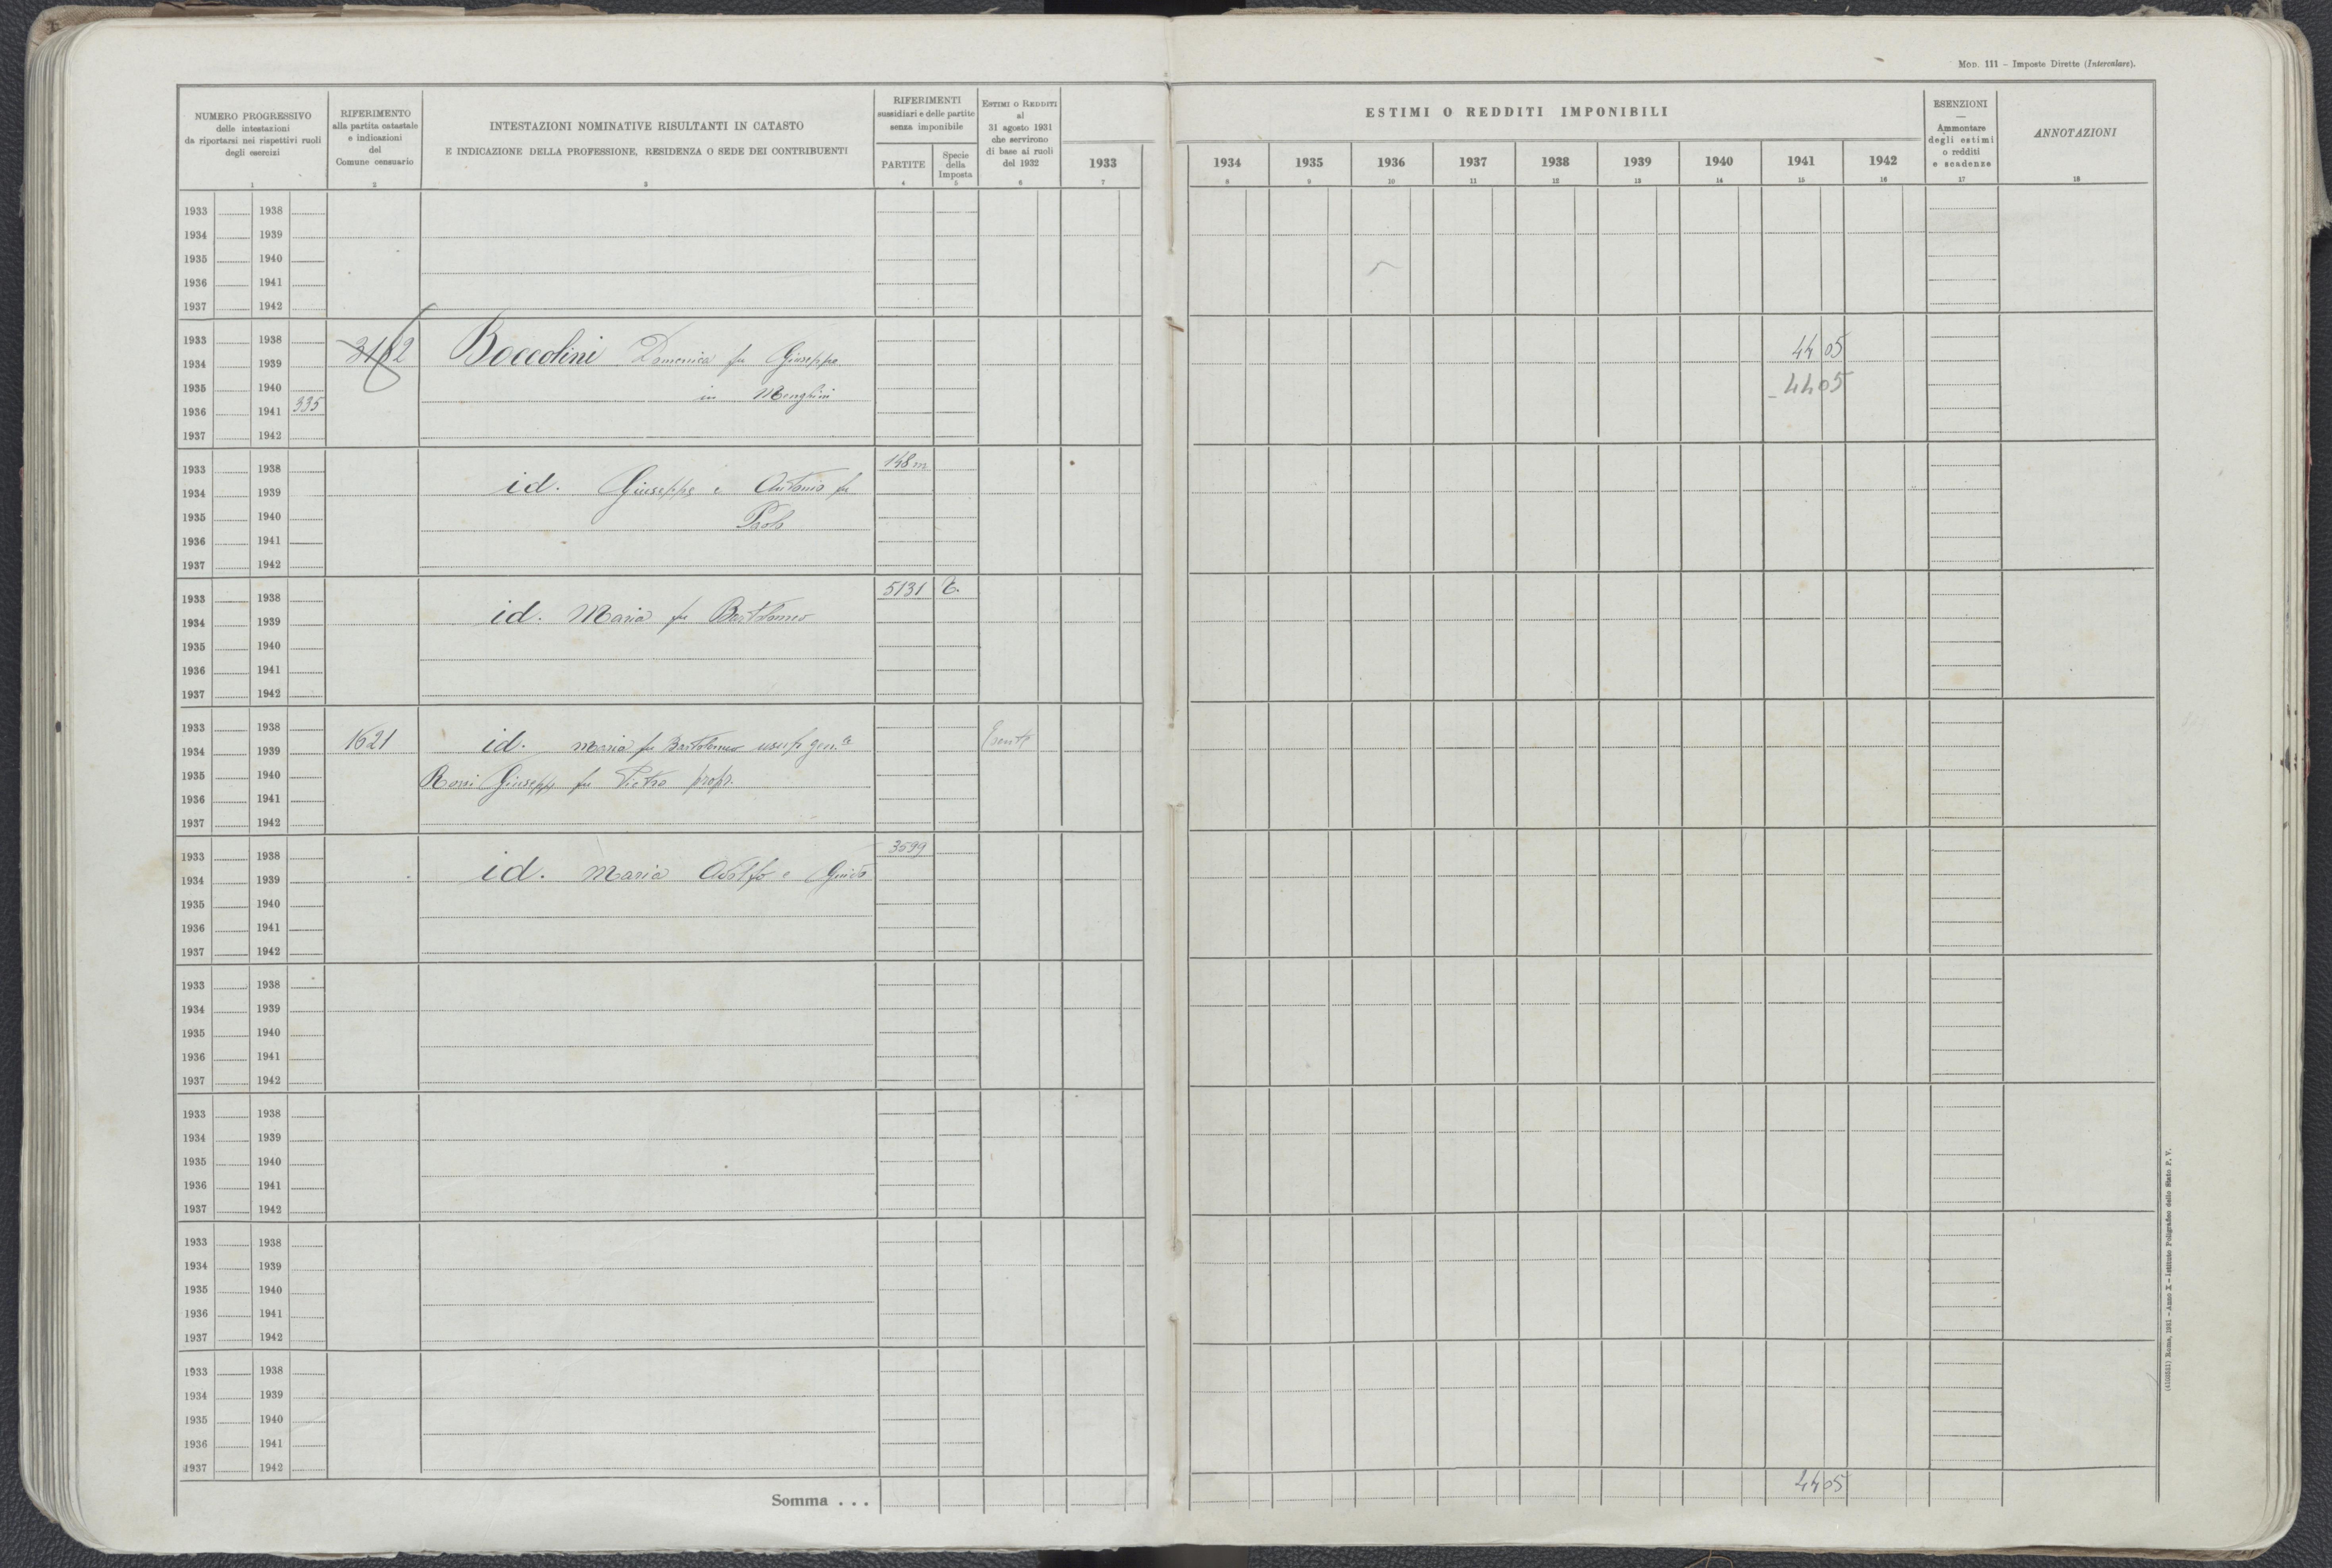 Mod. 111 – Imposte Dirette (Intercalare).
NUMERO PROGRESSIVO
delle intestazioni
da riportarsi nei rispettivi ruoli
degli esercizi
1
RIFERIMENTO
alla partita catastale
e indicazioni
del
Comune censuario
2
INTESTAZIONI NOMINATIVE RISULTANTI IN CATASTO
E INDICAZIONE DELLA PROFESSIONE, RESIDENZA O SEDE DEI CONTRIBUENTI
3
RIFERIMENTI
sussidiari e delle partite
senza imponibile
PARTITE
4
Specie
della
Imposta
5
Estimi o Redditi
al
31 agosto 1931
che servirono
di base ai ruoli
del 1932
6
1933
7
ESTIMI O REDDITI IMPONIBILI
1934 1935 1936 1937 1938 1939 1940 1941 1942
8 9 10 11 12 13 14 15 16
ESENZIONI
—
Ammontare
degli estimi
o redditi
e scadenze
17
ANNOTAZIONI
18
1933 1938
1934 1939
1935 1940
1936 1941
1937 1942
1933 1938
1934 1939 3182 Boccolini Domenica fu Giuseppe 44 05
1935 1940 in Menghini - 44 05
1936 1941 335
1937 1942
1933 1938 148 m
1934 1939 id. Giuseppe e Antonio fu
1935 1940 Paolo
1936 1941
1937 1942
1933 1938 5131
1934 1939 id. Maria fu Bartolomeo
1935 1940
1936 1941
1937 1942
1933 1938
1934 1939 1621 id. Maria fu Bartolomeo usuf. gen.le Esente
1935 1940 Rossi Giuseppe fu Pietro propr.
1936 1941
1937 1942
1933 1938 3599
1934 1939 id. Maria Adolfo e Guido
1935 1940
1936 1941
1937 1942
1933 1938
1934 1939
1935 1940
1936 1941
1937 1942
1933 1938
1934 1939
1935 1940
1936 1941
1937 1942
1933 1938
1934 1939
1935 1940
1936 1941
1937 1942
1933 1938
1934 1939
1935 1940
1936 1941
1937 1942
Somma . . . 44 05
Roma, 1931 – Anno X – Istituto Poligrafico dello Stato P. V.